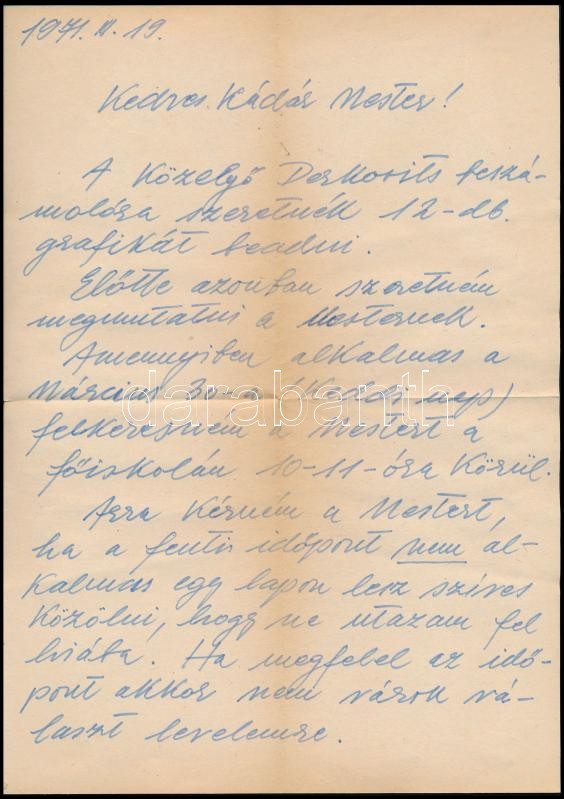 1971. III. 19.
Kedves Kádár Mester!
A Közelgő Derkovits beszá-
molóra szeretnék 12-db.
grafikát beadni.
Előtte azonban szeretném
megmutatni a Mesternek.
Amennyiben alkalmas a
Március 30-a (Kedd nap)
darabanth
felkeresném a Mestert a
főiskolán 10-11-óra Körül.
Arra Kérném a Mestert,
ha a fenti időpont nem al-
Kalmas egy lapon lesz szíves
Közölni, hogy ne utazzam fel
hiába. Ha megfelel az idő-
pont akkor nem várok vá-
laszt levelemre.